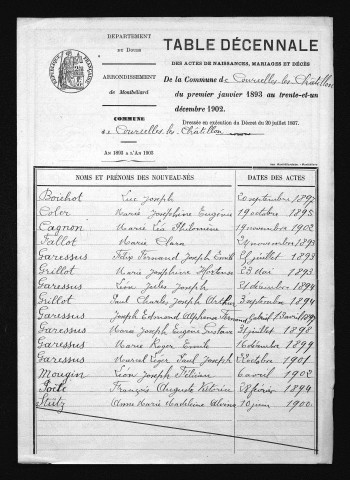 DÉPARTEMENT
du Doubs
ARRONDISSEMENT
de Montbéliard
COMMUNE
de Courcelles-les-Châtillon
AN 1893 A L'AN 1903
TABLE DÉCENNALE
DES ACTES DE NAISSANCES, MARIAGES ET DÉCÈS
De la Commune de Courcelles-les-Châtillon
du premier janvier 1893 au trente-et-un
décembre 1902.
Dressée en exécution du Décret du 20 juillet 1807.
NOMS ET PRÉNOMS DES NOUVEAU-NÉS DATES DES ACTES
Bouhot Luc Joseph 20 septembre 1897
Coler Marie Joséphine Eugénie 19 octobre 1895
Cagnon Marie Léa Philomène 19 novembre 1902
Fallot Marie Clara 24 novembre 1893
Garessus Félix Fernand Joseph Emile juillet 1893
Grillot Marie Joséphine Hortense 23 mai 1893
Garessus Léon Jules Joseph 31 décembre 1894
Grillot Paul Charles Joseph Arthur 3 septembre 1894
Garessus Joseph Edmond Alphonse Fernand Gabriel 13 avril
Garessus Marie Joseph Eugène Gustave 31 juillet 1898
Garessus Marie Roger Emile 16 décembre 1899
Garessus Marcel Léger Paul Joseph 22 octobre 1901
Mougin Léon Joseph Félicien 6 avril 1902
Poète François Auguste Victorien 28 février 1894
Stutz Anne Marie Madeleine Alvina 10 juin 1900